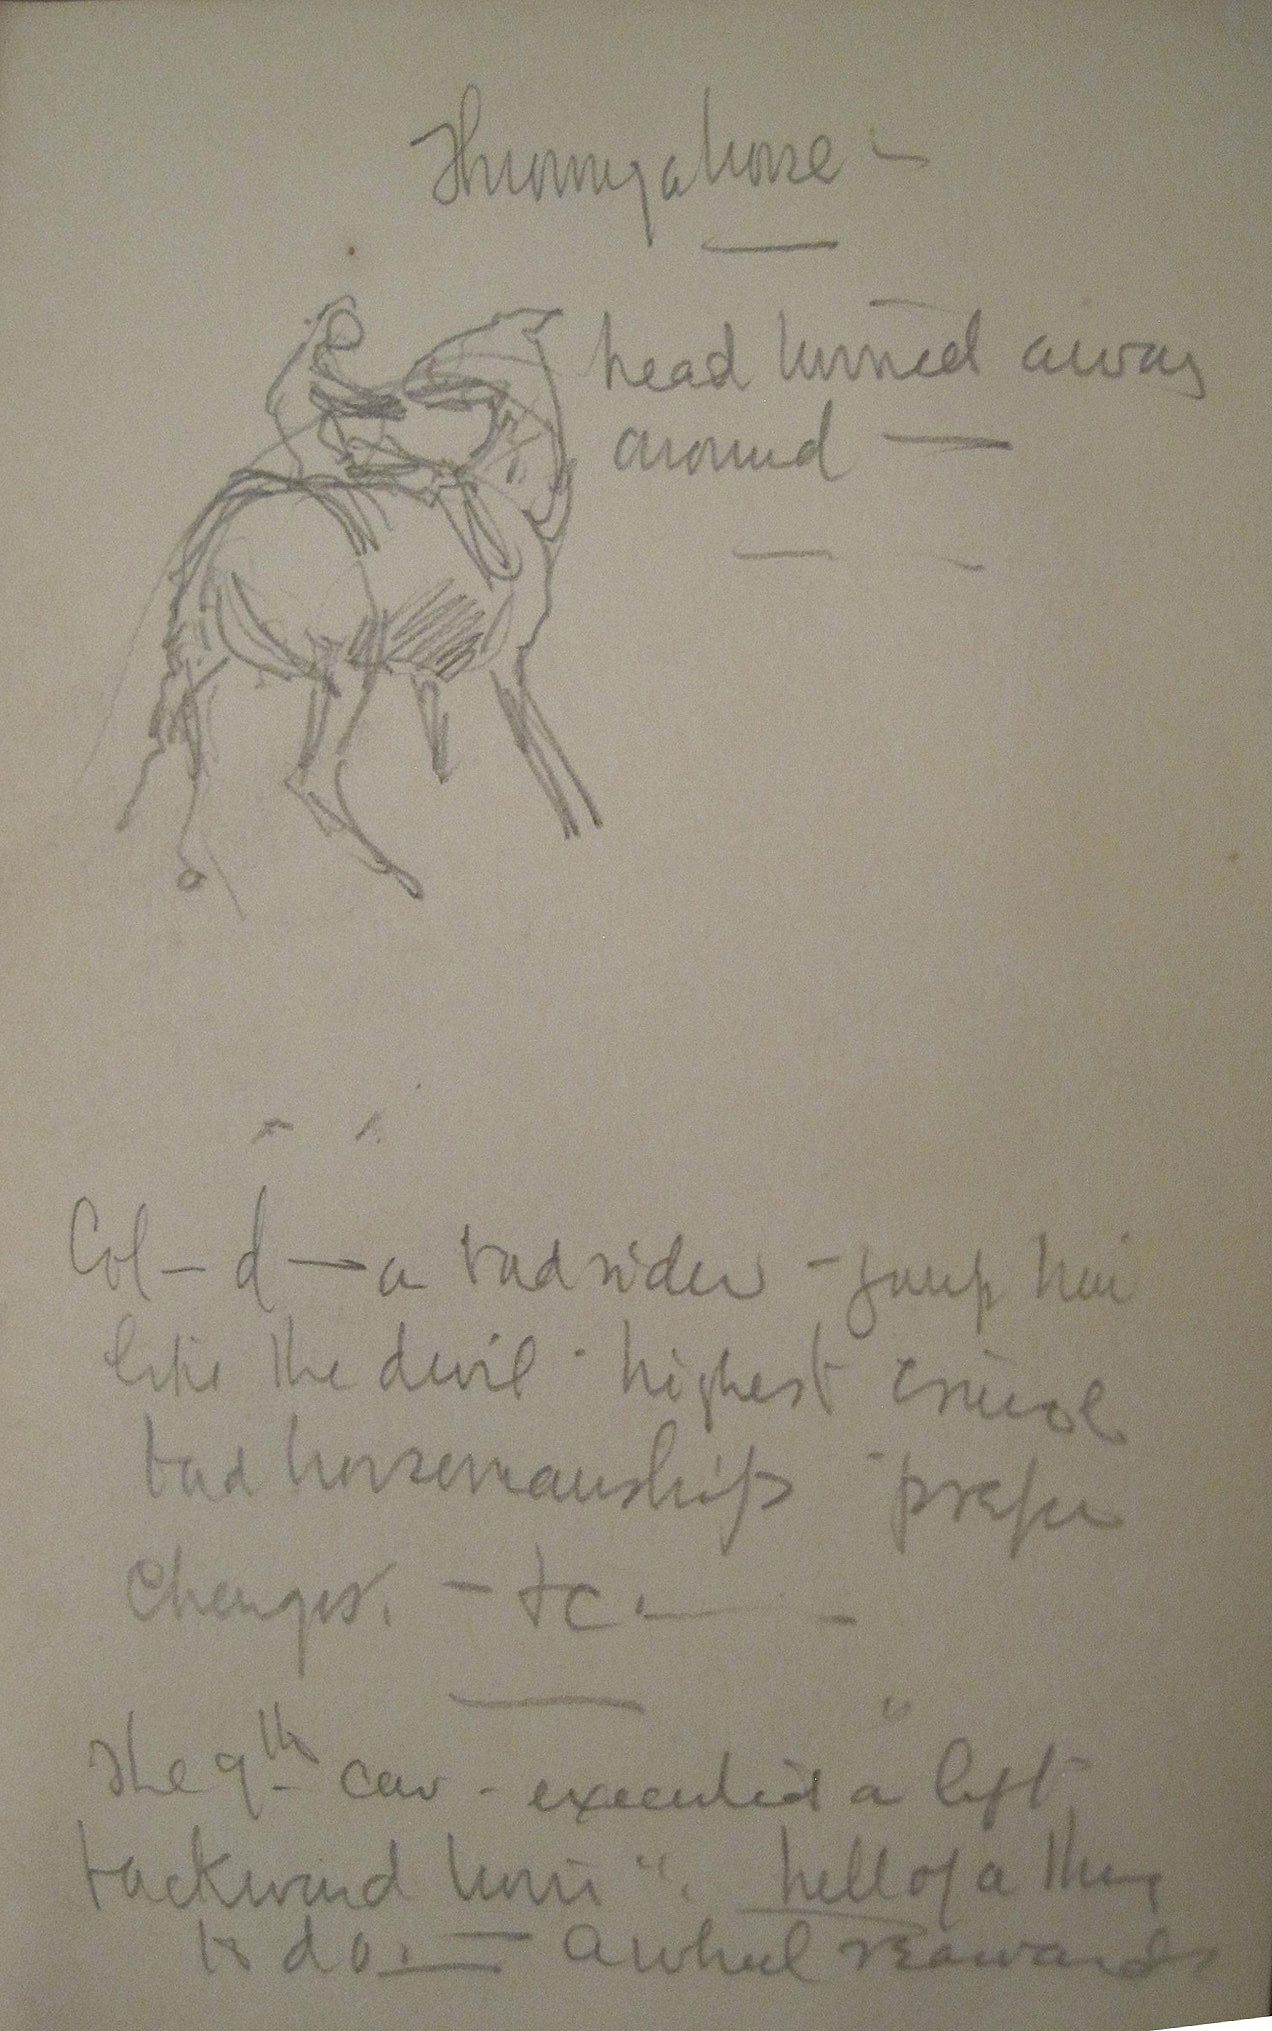 Throwing a horse -
head turned away
around —
Col - d — a bad rider - jump him
like the devil - highest
bad horsemanship - prefer
changes. - &c. —
The 9th cav - executed a "left
backward turn". hell of a thing
to do. — a wheel rearward